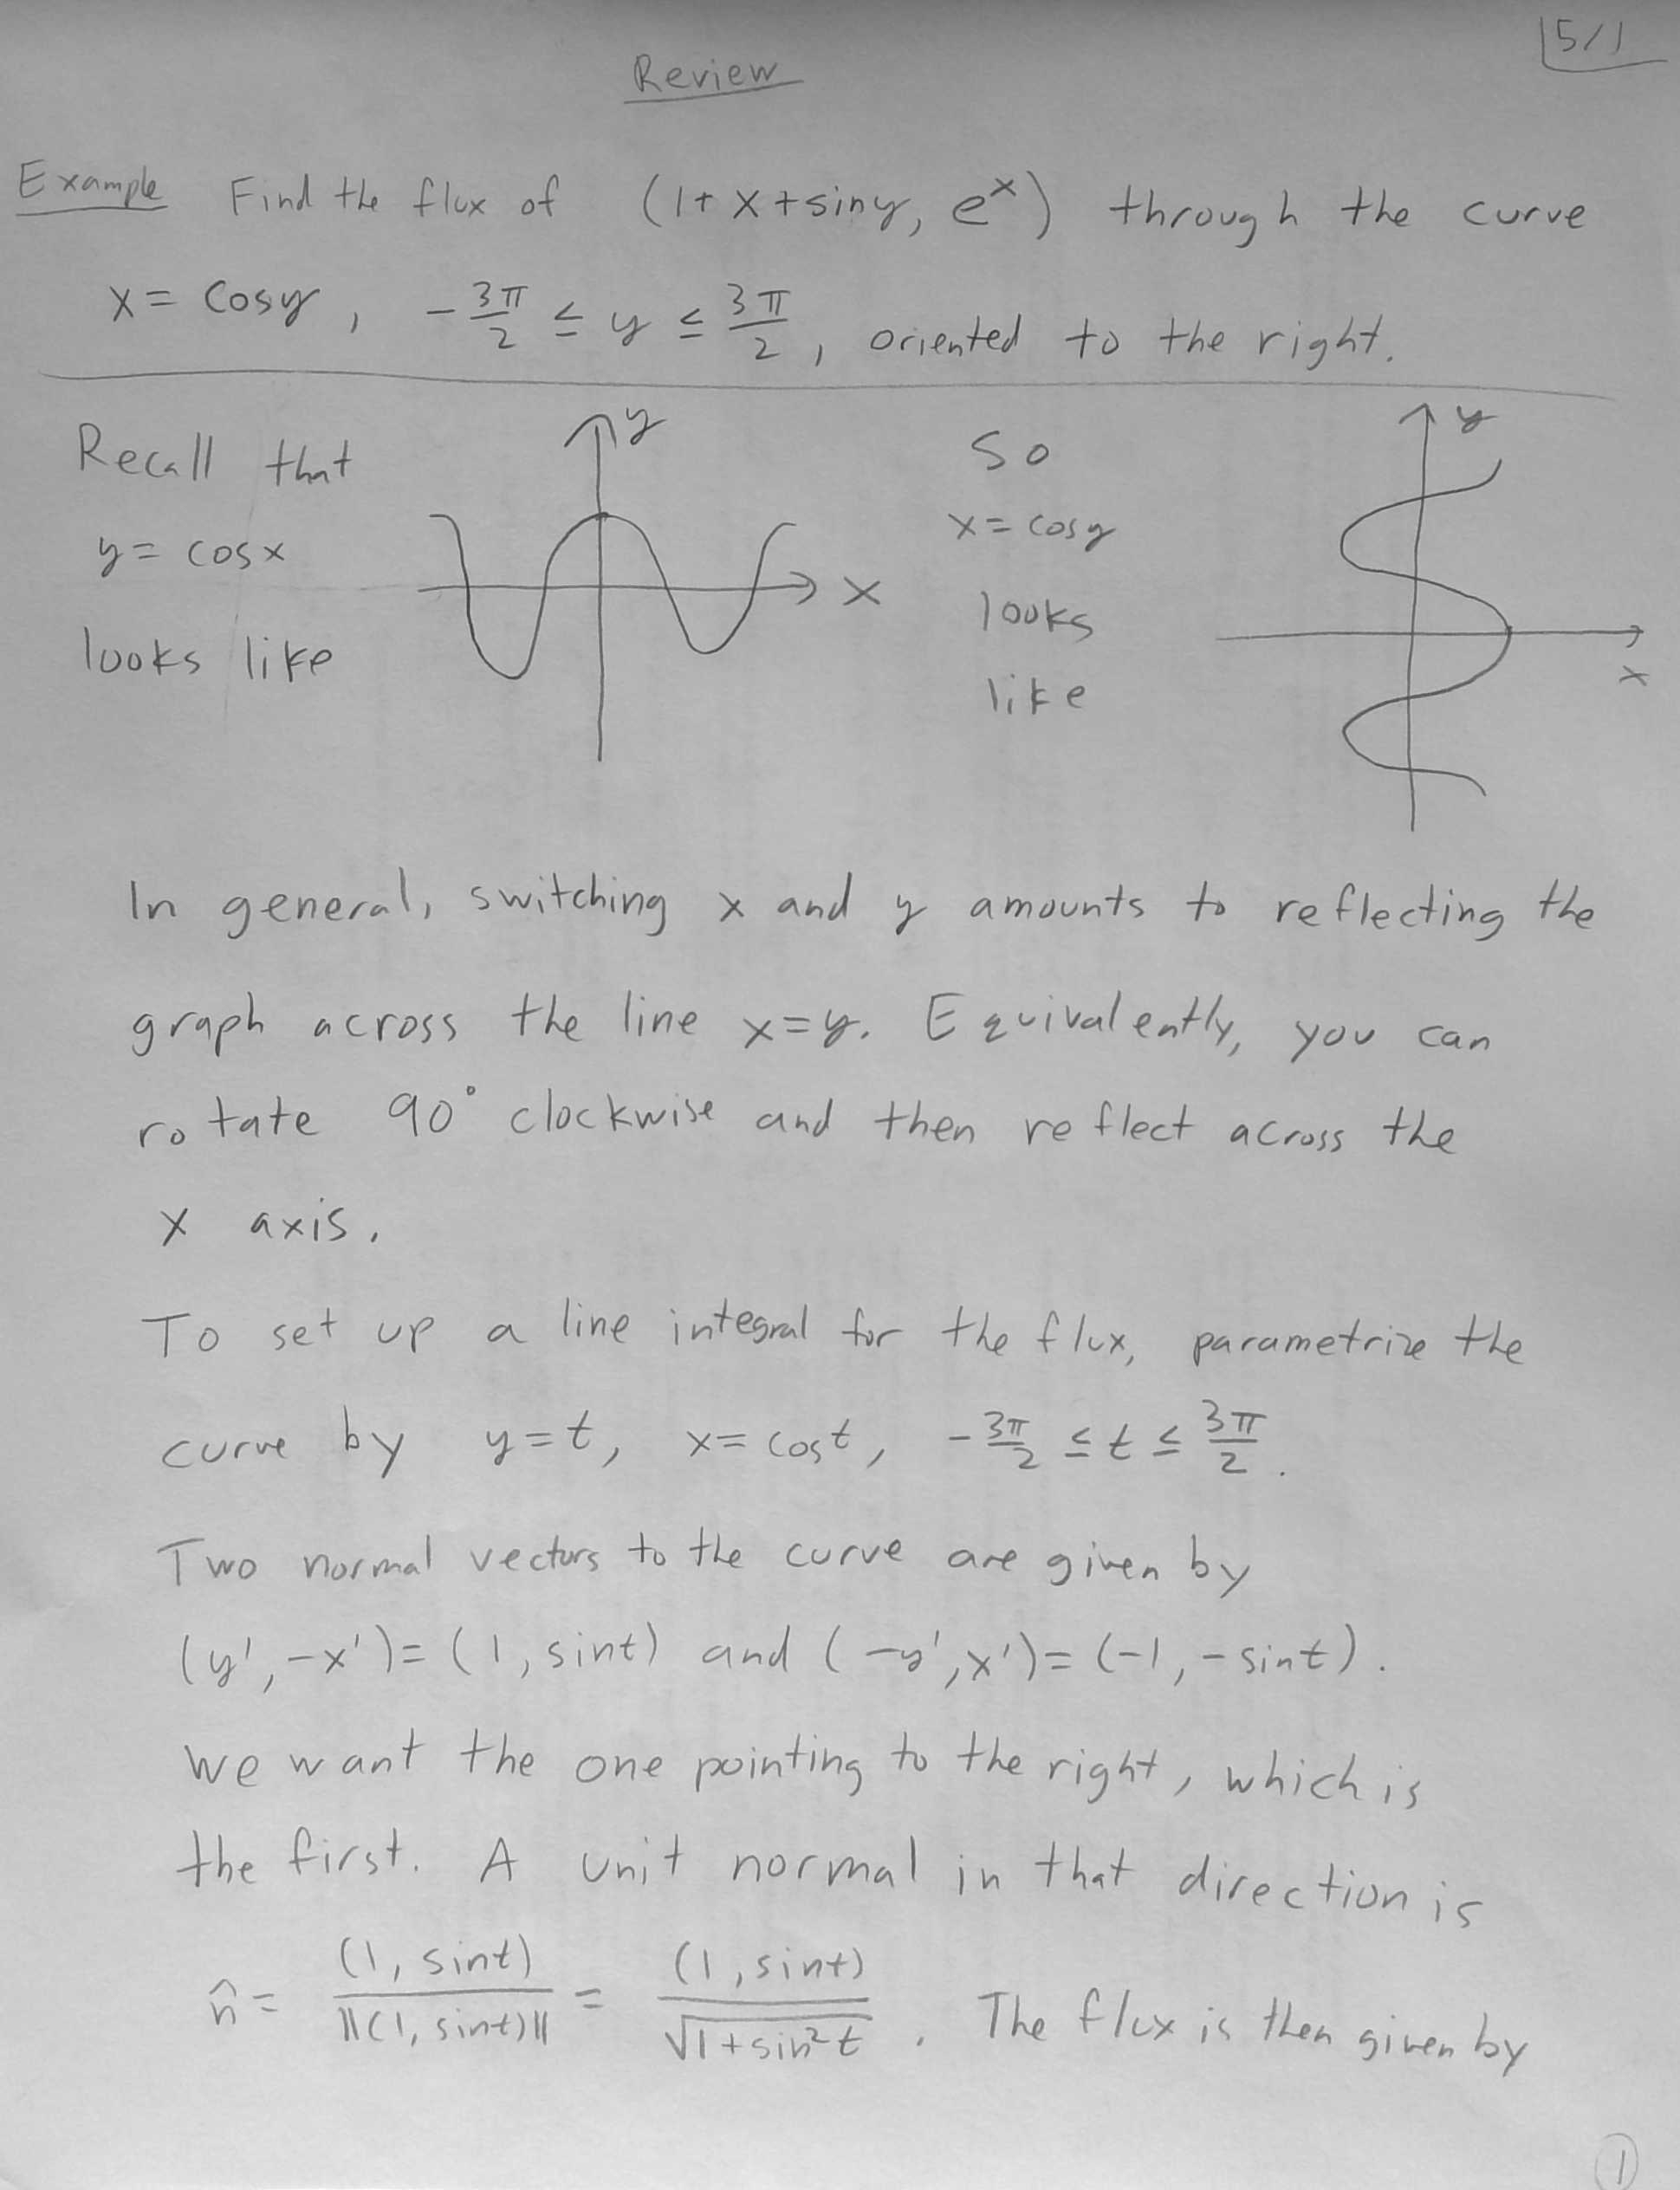 5/1
Review
Example Find the flux of (1+x+siny, eˣ) through the curve
x = cosy, -3π/2 ≤ y ≤ 3π/2, oriented to the right.
Recall that
y = cosx
looks like
y
x
So
x = cosy
looks
like
y
x
In general, switching x and y amounts to reflecting the
graph across the line x=y. Equivalently, you can
rotate 90° clockwise and then reflect across the
x axis.
To set up a line integral for the flux, parametrize the
curve by y=t, x=cost, -3π/2 ≤ t ≤ 3π/2.
Two normal vectors to the curve are given by
(y', -x') = (1, sint) and (-y', x') = (-1, -sint).
We want the one pointing to the right, which is
the first. A unit normal in that direction is
n̂ = (1, sint)/||(1, sint)|| = (1, sint)/√(1+sin²t). The flux is then given by
1